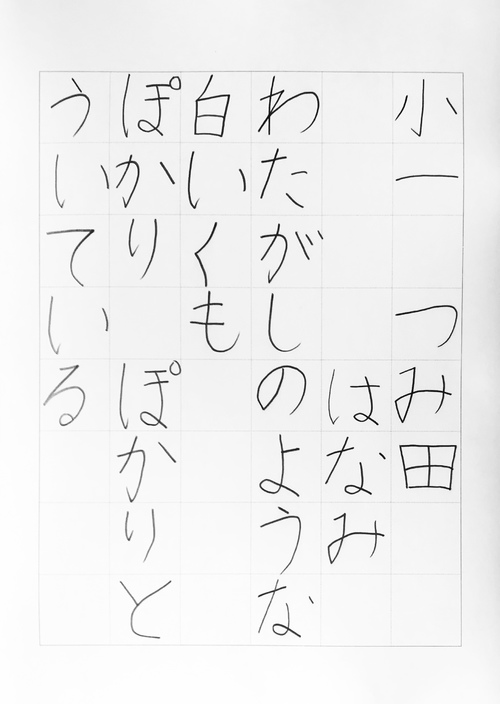 小一　つみ田
はなみ
わたがしのような
白いくも
ぽかり　ぽかりと
ういている